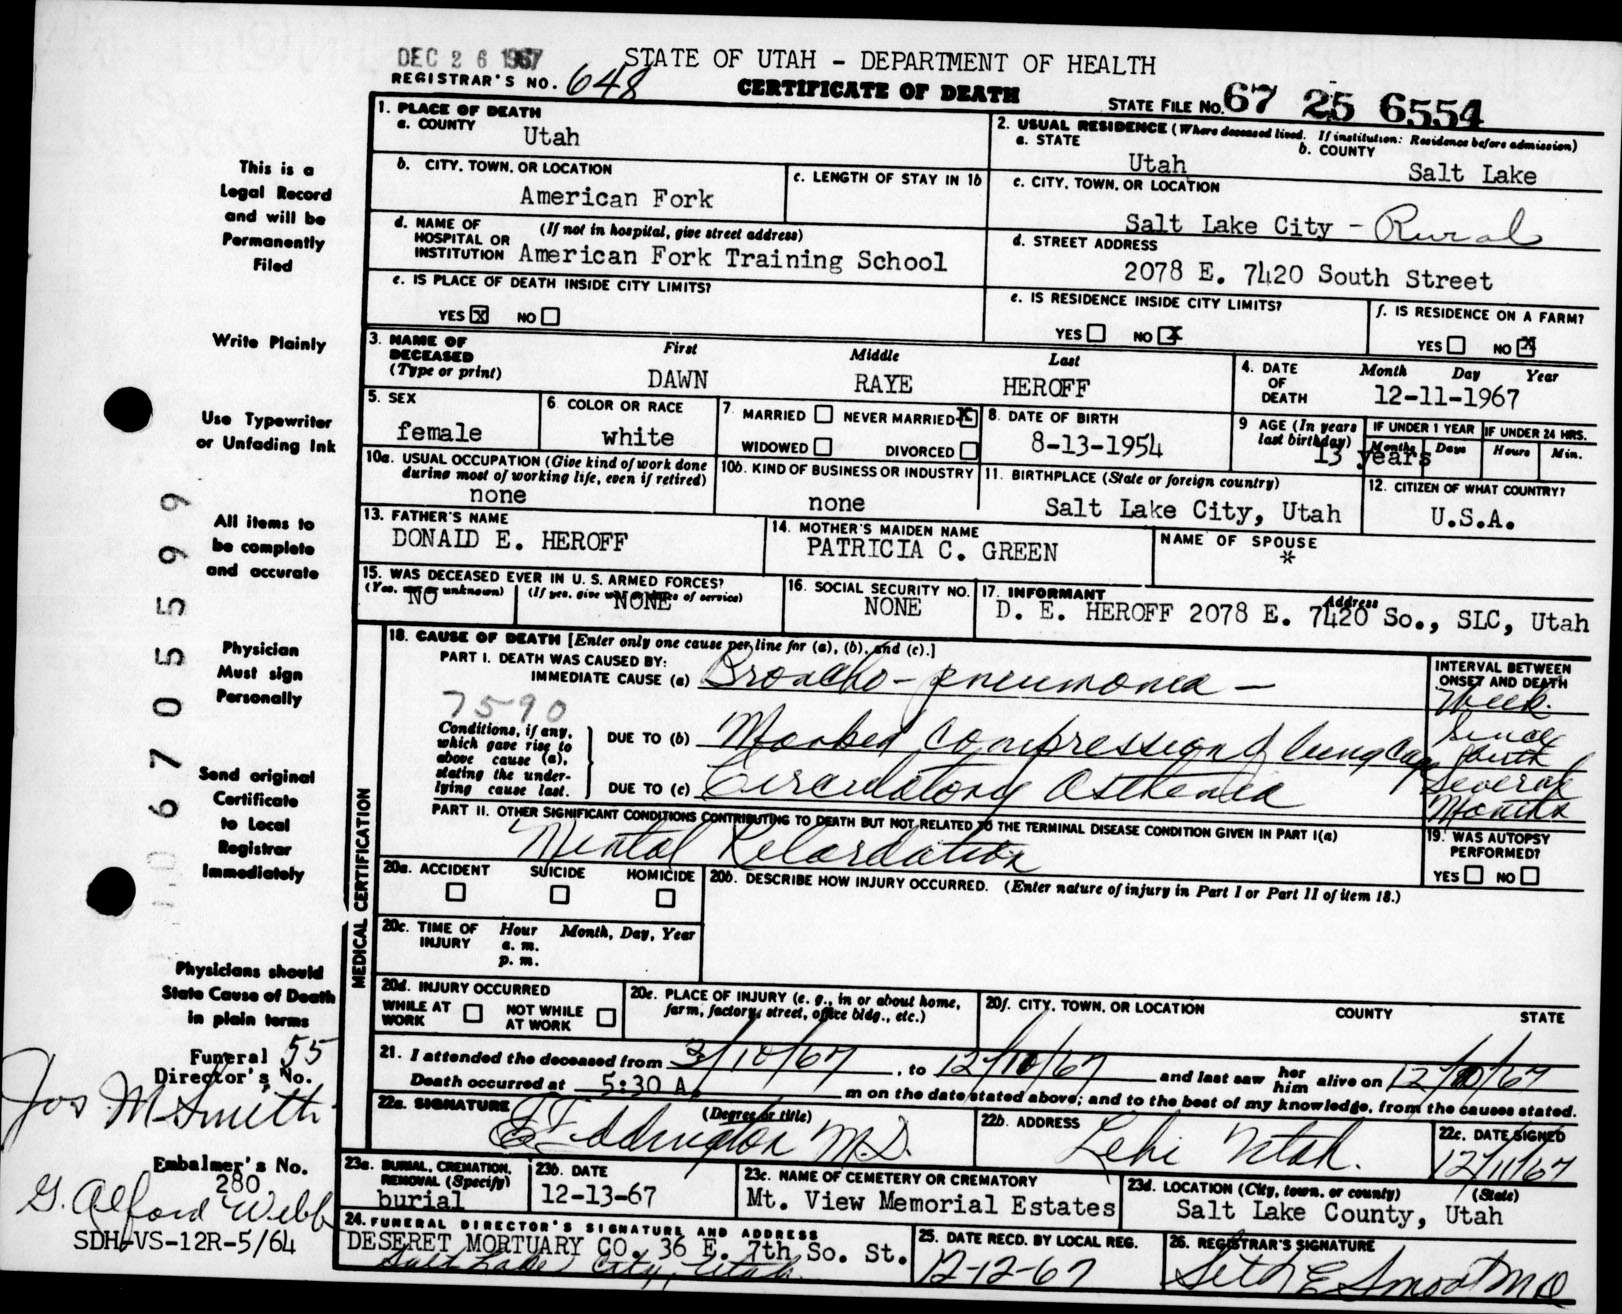 DEC 26 1967
STATE OF UTAH - DEPARTMENT OF HEALTH
REGISTRAR'S NO. 648
CERTIFICATE OF DEATH
STATE FILE NO. 67 25 6554
This is a
Legal Record
and will be
Permanently
Filed
Write Plainly
Use Typewriter
or Unfading Ink
All items to
be complete
and accurate
Physician
Must sign
Personally
Send original
Certificate
to Local
Registrar
Immediately
Physicians should
State Cause of Death
in plain terms
Funeral 55
Director's No.
Jos M Smith
Embalmer's No.
280
G. Alford Webb
SDH-VS-12R-5/64
067055599
1. PLACE OF DEATH
a. COUNTY
Utah
2. USUAL RESIDENCE (Where deceased lived. If institution: Residence before admission)
a. STATE
Utah
b. COUNTY
Salt Lake
b. CITY, TOWN, OR LOCATION
American Fork
c. LENGTH OF STAY IN 1b
c. CITY, TOWN, OR LOCATION
Salt Lake City - Rural
d. NAME OF HOSPITAL OR INSTITUTION (If not in hospital, give street address)
American Fork Training School
d. STREET ADDRESS
2078 E. 7420 South Street
e. IS PLACE OF DEATH INSIDE CITY LIMITS?
YES X NO
e. IS RESIDENCE INSIDE CITY LIMITS?
YES NO X
f. IS RESIDENCE ON A FARM?
YES NO X
3. NAME OF DECEASED (Type or print)
First Middle Last
DAWN RAYE HEROFF
4. DATE OF DEATH Month Day Year
12-11-1967
5. SEX
female
6. COLOR OR RACE
white
7. MARRIED NEVER MARRIED X
WIDOWED DIVORCED
8. DATE OF BIRTH
8-13-1954
9. AGE (In years last birthday)
13 years
IF UNDER 1 YEAR
Months Days
IF UNDER 24 HRS.
Hours Min.
10a. USUAL OCCUPATION (Give kind of work done during most of working life, even if retired)
none
10b. KIND OF BUSINESS OR INDUSTRY
none
11. BIRTHPLACE (State or foreign country)
Salt Lake City, Utah
12. CITIZEN OF WHAT COUNTRY?
U.S.A.
13. FATHER'S NAME
DONALD E. HEROFF
14. MOTHER'S MAIDEN NAME
PATRICIA C. GREEN
NAME OF SPOUSE
*
15. WAS DECEASED EVER IN U. S. ARMED FORCES?
(Yes, no, or unknown) (If yes, give war or dates of service)
NO NONE
16. SOCIAL SECURITY NO.
NONE
17. INFORMANT Address
D. E. HEROFF 2078 E. 7420 So., SLC, Utah
MEDICAL CERTIFICATION
18. CAUSE OF DEATH [Enter only one cause per line for (a), (b), and (c).]
PART I. DEATH WAS CAUSED BY:
IMMEDIATE CAUSE (a) Broncho-pneumonia -
INTERVAL BETWEEN ONSET AND DEATH
Week
7590
Conditions, if any, which gave rise to above cause (a), stating the underlying cause last.
DUE TO (b) Marked Compression of lung Cap
Since birth
DUE TO (c) Circulatory Asthenia
Several Months
PART II. OTHER SIGNIFICANT CONDITIONS CONTRIBUTING TO DEATH BUT NOT RELATED TO THE TERMINAL DISEASE CONDITION GIVEN IN PART I(a)
Mental Retardation
19. WAS AUTOPSY PERFORMED?
YES NO
20a. ACCIDENT SUICIDE HOMICIDE
20b. DESCRIBE HOW INJURY OCCURRED. (Enter nature of injury in Part I or Part II of item 18.)
20c. TIME OF INJURY Hour Month, Day, Year
a. m.
p. m.
20d. INJURY OCCURRED
WHILE AT WORK NOT WHILE AT WORK
20e. PLACE OF INJURY (e. g., in or about home, farm, factory, street, office bldg., etc.)
20f. CITY, TOWN, OR LOCATION COUNTY STATE
21. I attended the deceased from 3/10/67, to 12/10/67 and last saw her him alive on 12/10/67
Death occurred at 5:30 A. m on the date stated above; and to the best of my knowledge, from the causes stated.
22a. SIGNATURE (Degree or title)
E Eddington M.D.
22b. ADDRESS
Lehi Utah.
22c. DATE SIGNED
12/11/67
23a. BURIAL, CREMATION, REMOVAL (Specify)
burial
23b. DATE
12-13-67
23c. NAME OF CEMETERY OR CREMATORY
Mt. View Memorial Estates
23d. LOCATION (City, town, or county) (State)
Salt Lake County, Utah
24. FUNERAL DIRECTOR'S SIGNATURE AND ADDRESS
DESERET MORTUARY CO. 36 E. 7th So. St.
Salt Lake City, Utah
25. DATE RECD. BY LOCAL REG.
12-12-67
26. REGISTRAR'S SIGNATURE
Seth E Smoot MD